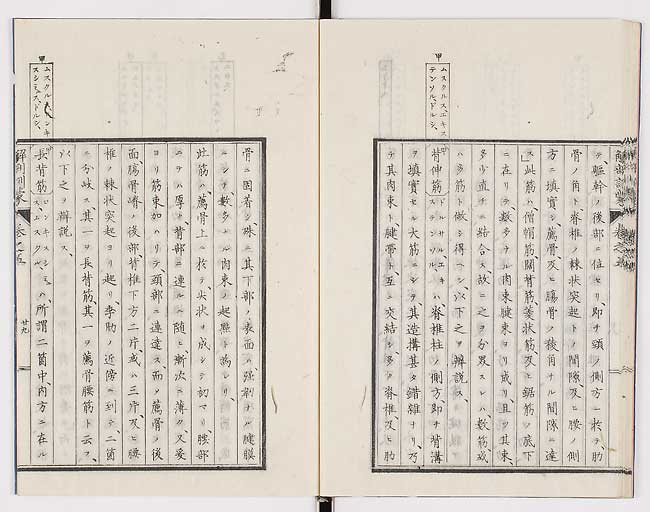 テ、軀幹ノ後部ニ位セリ、即チ頭ノ側方ニ於テ、肋
骨ノ角ト脊椎ノ棘状突起トノ間隙及ヒ腰ノ側
方ニ填實シ薦骨及ヒ腸骨ノ稜角ナル間隙ニ達
ス、此筋ハ、僧帽筋、闊背筋、菱状筋、及ヒ鋸筋ノ底下
ニ在リテ、数多ナル肉束腱束ヨリ成リ且ツ其束、
多少直チニ結合ス故ニ之ヲ分界スレハ、数筋或
ハ多筋ト做シ得ヘシ、以下之ヲ辨説ス、
甲
ムスクルス、エキス
テンソル、ドルシ、
背伸筋 ドルサル、エキ
ステンソル、ハ脊椎柱ノ側方即チ背溝
ヲ填實セル大筋ニシテ、其造構甚タ錯雑ナリ、乃
チ其肉束ト腱帯ト、互ニ交結シ、多ク脊椎及ヒ肋
骨ニ固着シ殊ニ其下部ノ表面ハ強剌ナル腱膜
ニシテ、数多ナル肉束ノ起點ト為レリ、
此筋ハ、薦骨上ニ於テ尖状ヲ成シテ初マリ、腰部
ニテハ厚ク、背部ニ連ルニ随ヒ漸次ニ薄ク、又姿
ヨリ筋束加ハリテ、頭部ニ連達ス、而シ薦骨ノ後
面、腸骨嵴ノ後部、背椎下方二片、或ハ三片及ヒ腰
椎ノ棘状突起ヨリ起リ、季肋ノ近傍ニ到テ、二箇
ニ分岐ス、其一ヲ長背筋、其一ヲ薦骨腰筋ト云フ、
以下之ヲ辨説ス、
甲
ムスクル、ロンキ
スシミュス、ドルシ、
長背筋 ロンキスシミュ
スムスクル、ハ、所謂二箇中、内方ニ在ル
廿九